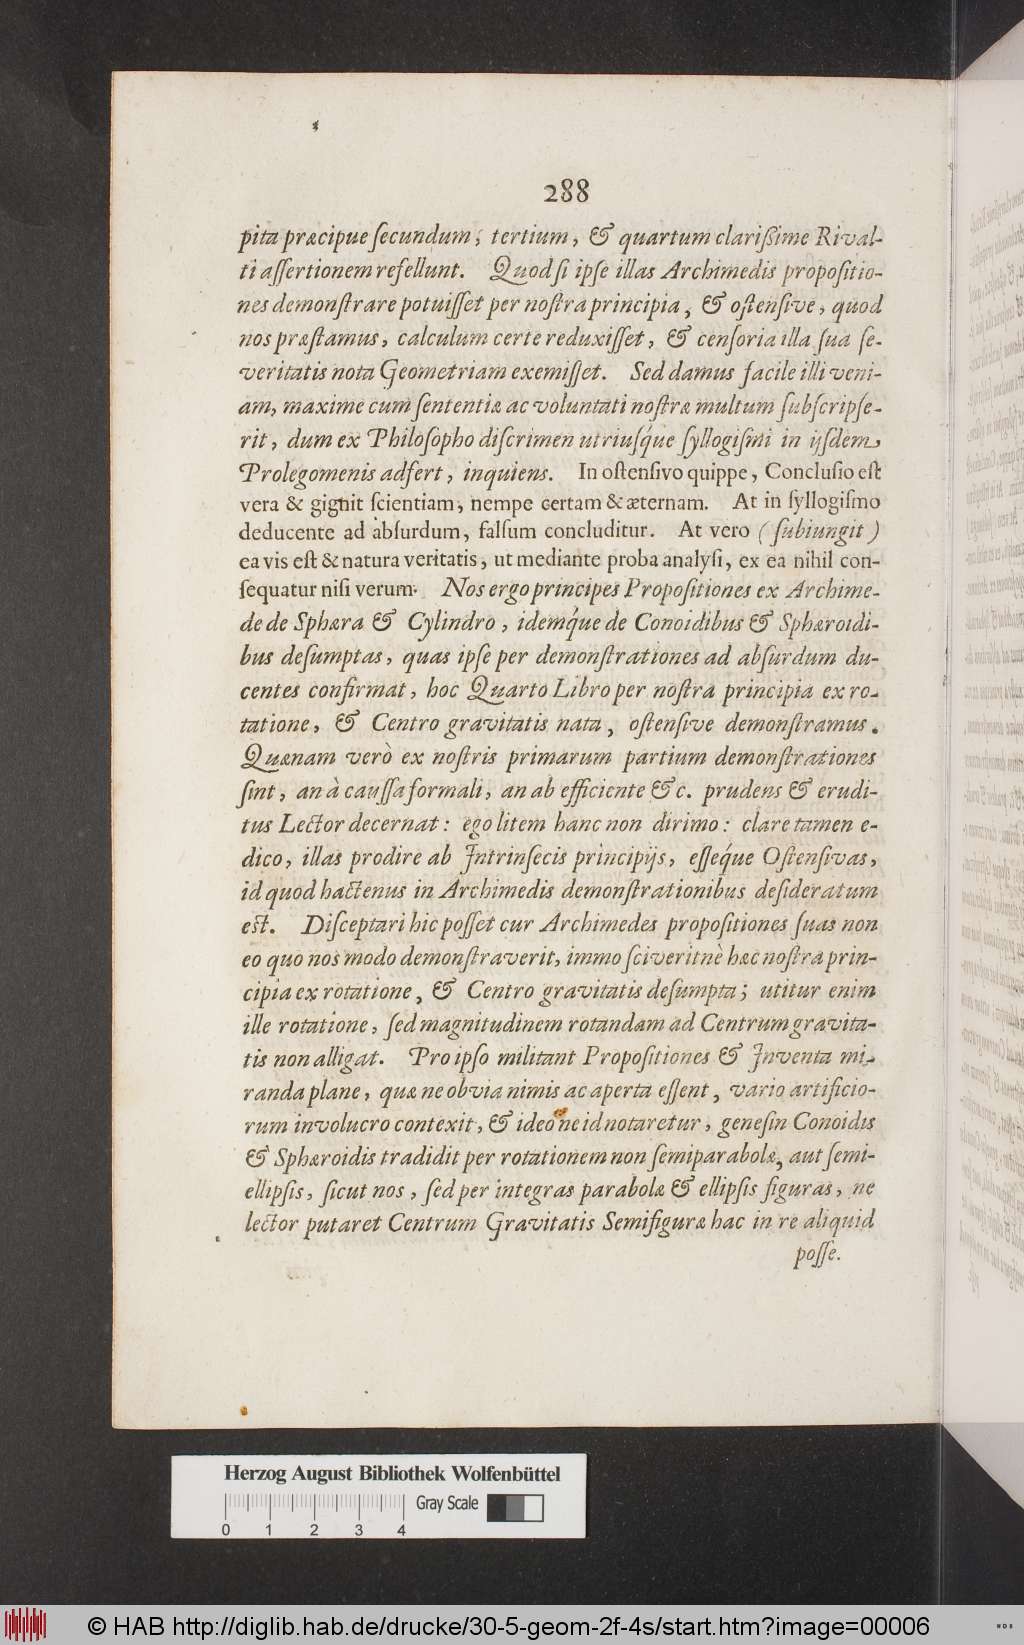 288
pita præcipue ſecundum, tertium, & quartum clarißime Rival-
ti aſſertionem refellunt. Quod ſi ipſe illas Archimedis propoſitio-
nes demonſtrare potuiſſet per noſtra principia, & oſtenſive, quod
nos præſtamus, calculum certe reduxiſſet, & cenſoria illa ſua ſe-
veritatis nota Geometriam exemiſſet. Sed damus facile illi veni-
am, maxime cum ſententiæ ac voluntati noſtræ multum ſubſcripſe-
rit, dum ex Philoſopho diſcrimen utriuſq́ue ſyllogiſmi in ijſdem
Prolegomenis adfert, inquiens. In oſtenſivo quippe, Concluſio eſt
vera & gignit ſcientiam, nempe certam & æternam. At in ſyllogiſmo
deducente ad abſurdum, falſum concluditur. At vero (ſubiungit)
ea vis eſt & natura veritatis, ut mediante proba analyſi, ex ea nihil con-
ſequatur niſi verum. Nos ergo principes Propoſitiones ex Archime-
de de Sphæra & Cylindro, idemq́ue de Conoidibus & Sphæroidi-
bus deſumptas, quas ipſe per demonſtrationes ad abſurdum du-
centes confirmat, hoc Quarto Libro per noſtra principia ex ro-
tatione, & Centro gravitatis nata, oſtenſive demonſtramus.
Quænam verò ex noſtris primarum partium demonſtrationes
ſint, an à cauſſa formali, an ab efficiente &c. prudens & erudi-
tus Lector decernat: ego litem hanc non dirimo: clare tamen e-
dico, illas prodire ab Intrinſecis principijs, eſſeq́ue Oſtenſivas,
id quod hactenus in Archimedis demonſtrationibus deſideratum
est. Diſceptari hic poſſet cur Archimedes propoſitiones ſuas non
eo quo nos modo demonſtraverit, immo ſciveritnè hæc noſtra prin-
cipia ex rotatione, & Centro gravitatis deſumpta; utitur enim
ille rotatione, ſed magnitudinem rotandam ad Centrum gravita-
tis non alligat. Pro ipſo militant Propoſitiones & Inventa mi-
randa plane, quæ ne obvia nimis ac aperta eſſent, vario artificio-
rum involucro contexit, & ideo ne id notaretur, geneſin Conoidis
& Sphæroidis tradidit per rotationem non ſemiparabolæ, aut ſemi-
ellipſis, ſicut nos, ſed per integras parabolæ & ellipſis figuras, ne
lector putaret Centrum Gravitatis Semifiguræ hac in re aliquid
poſſe.
Herzog August Bibliothek Wolfenbüttel
Gray Scale
0 1 2 3 4
© HAB http://diglib.hab.de/drucke/30-5-geom-2f-4s/start.htm?image=00006